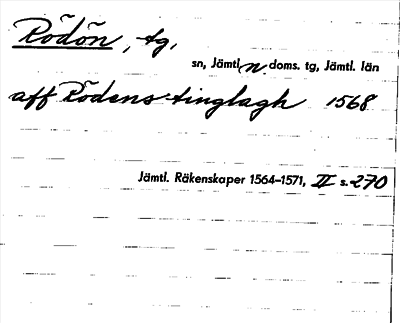 Rödön, tg,
sn, Jämtl. n. doms. tg, Jämtl. län
aff Rödens tinglagh 1568
Jämtl. Räkenskaper 1564–1571, II s. 270